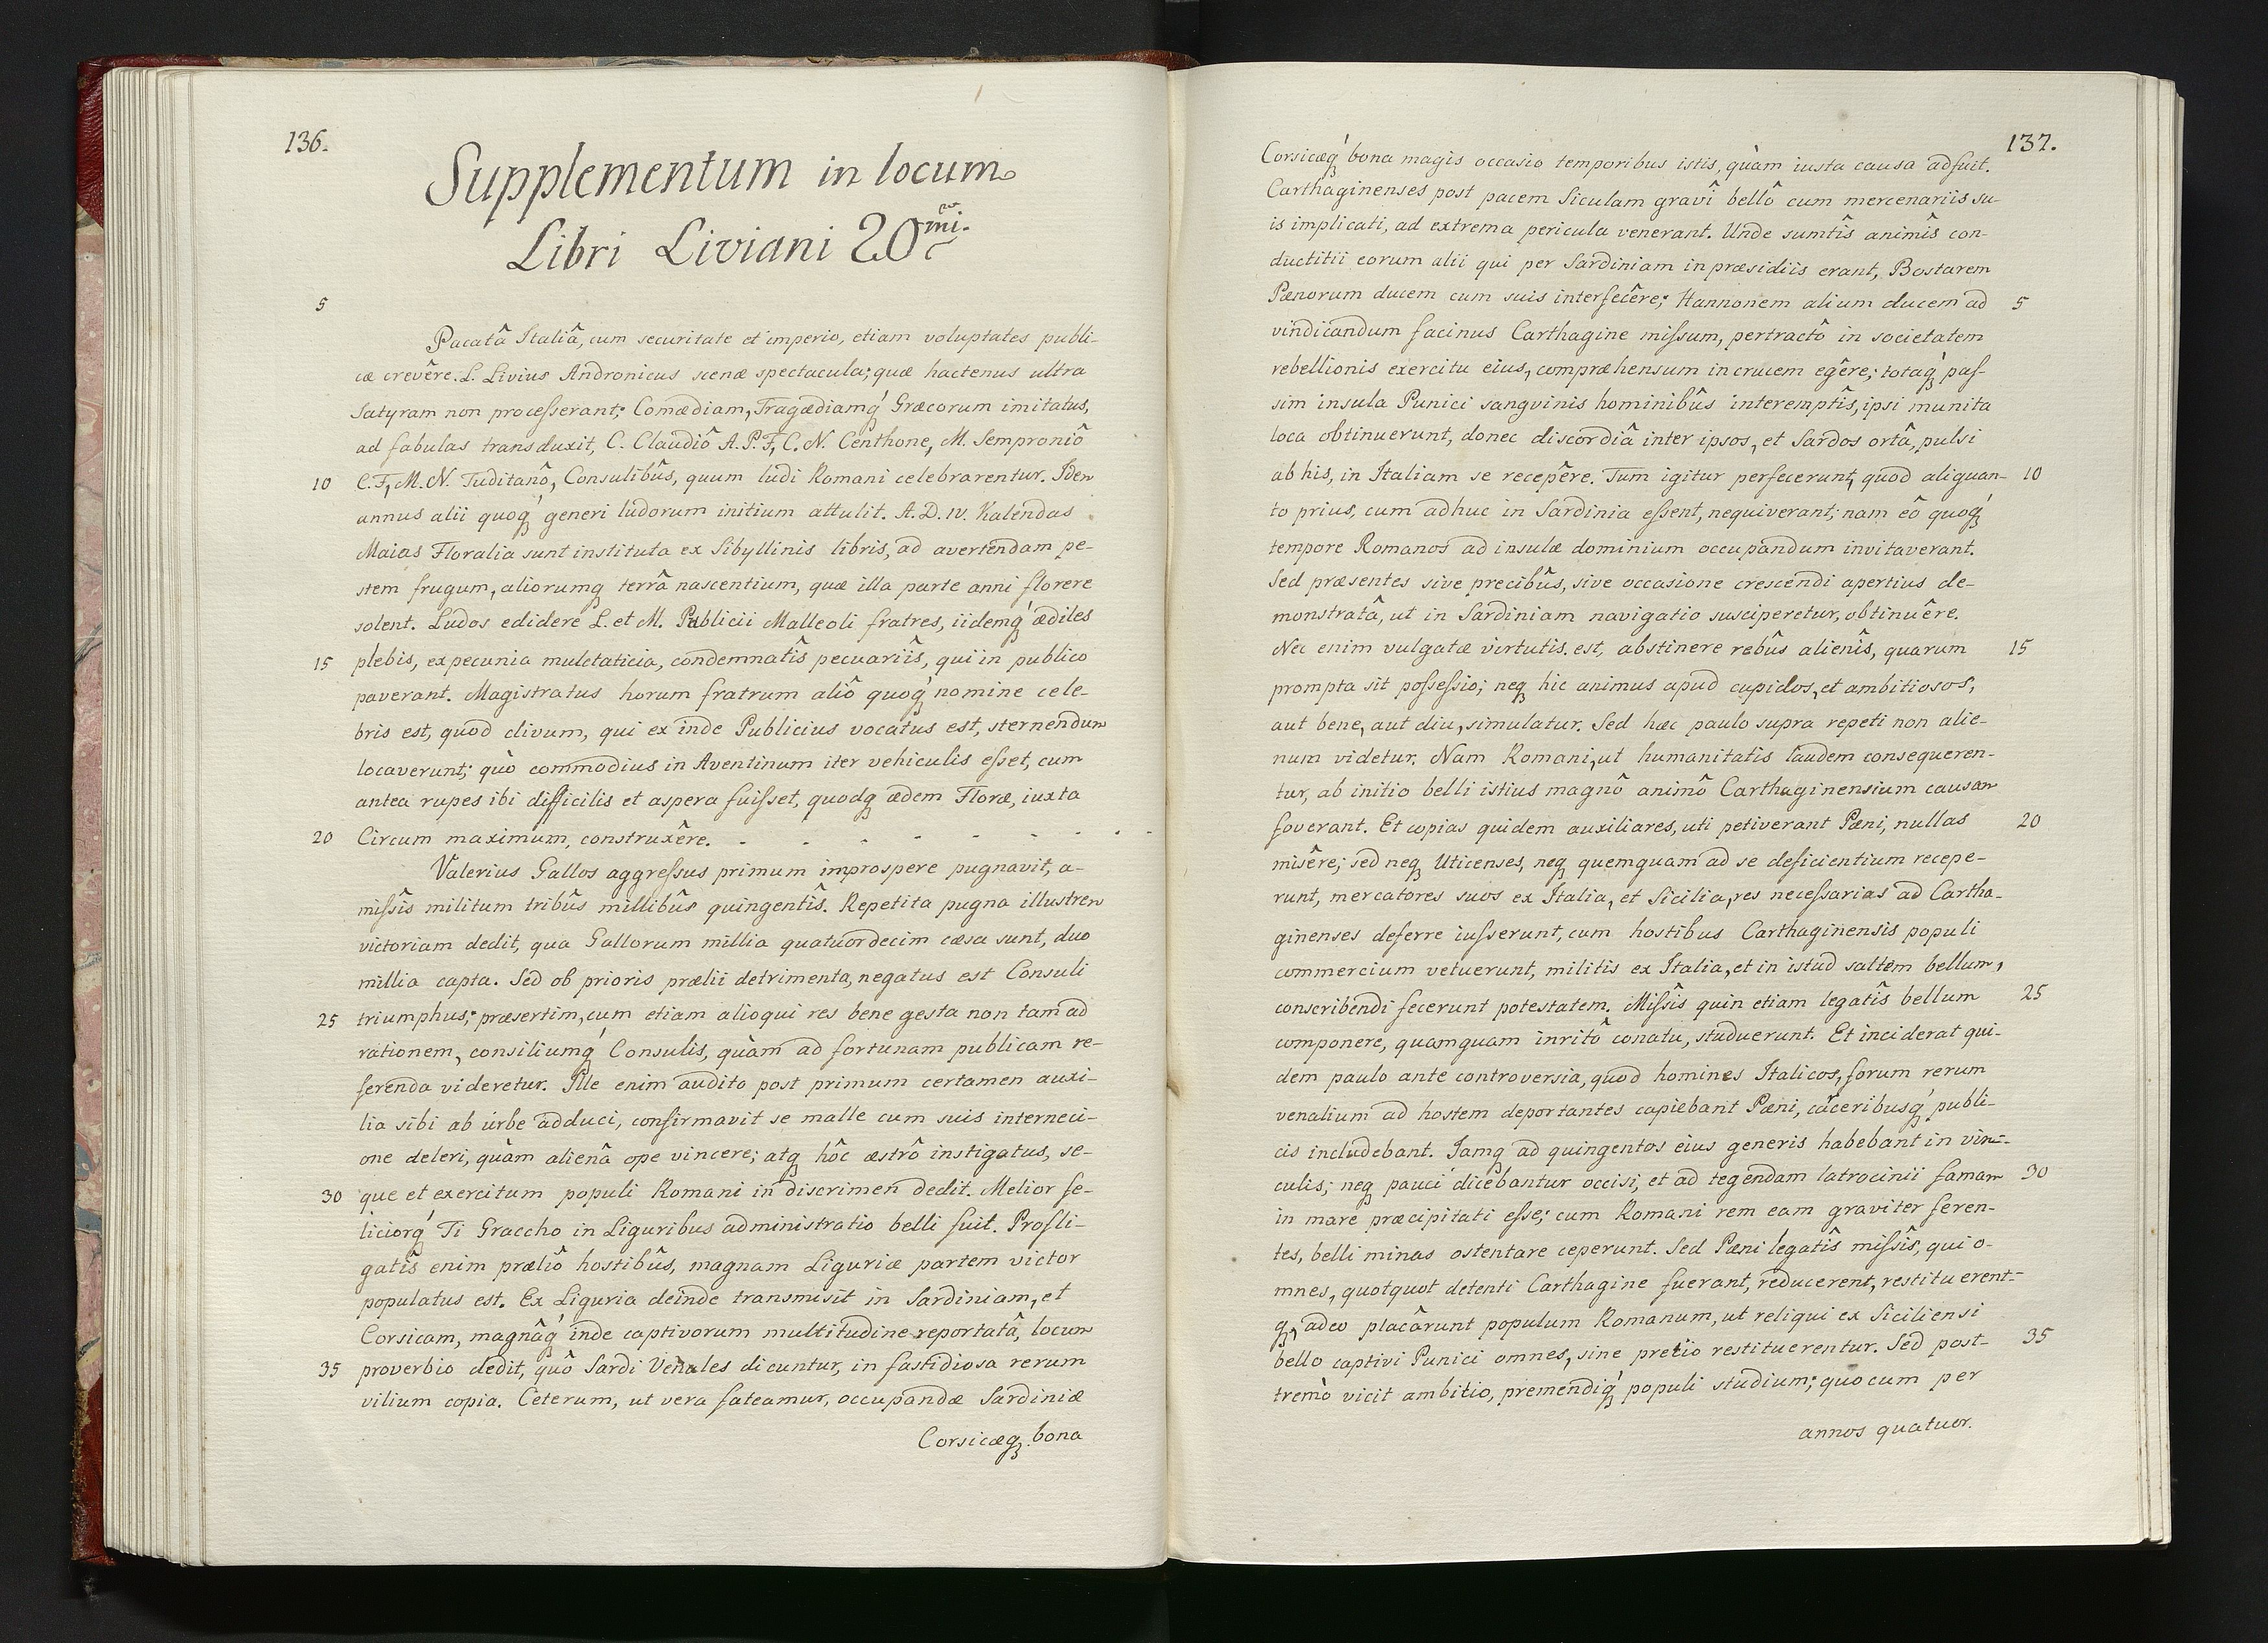 136.
Supplementum in locum
Libri Liviani 20mi.
5
Pacatâ Italiâ, cum securitate et imperio, etiam voluptates publi-
cæ crevêre. L. Livius Andronicus scenæ spectacula; quæ hactenus ultra
Satyram non processerant; Comædiam, Tragædiamq́ Græcorum imitatus,
ad fabulas transduxit, C. Claudiô A.P.F, C.N. Centhone, M. Semproniô
10 C.F, M.N. Tuditanô, Consulibûs, quum ludi Romani celebrarentur. Idem
annus alii quoq́ generi ludorum initium attulit. A.D. IV. Kalendas
Maias Floralia sunt instituta ex Sibyllinis libris, ad avertendam pe-
stem frugum, aliorumq terrâ nascentium, quæ illa parte anni florere
solent. Ludos edidere L. et M. Publicii Malleoli fratres, iidemq́ ædiles
15 plebis, ex pecunia mulctaticia, condemnatîs pecuariîs, qui in publico
paverant. Magistratus horum fratrum aliô quoq́ nomine cele-
bris est, quod clivum, qui ex inde Publicius vocatus est, sternendum
locaverunt; quò commodius in Aventinum iter vehiculis esset, cum
antea rupes ibi difficilis et aspera fuisset, quodq ædem Floræ, iuxta
20 Circum maximum, construxêre. - - - - - - - -
Valerius Gallos aggressus primum improspere pugnavit, a-
missîs militum tribûs millibûs quingentîs. Repetita pugna illustrem
victoriam dedit, qua Gallorum millia quatuordecim cæsa sunt, duo
millia capta. Sed ob prioris prælii detrimenta, negatus est Consuli
25 triumphus; præsertim, cum etiam alioqui res bene gesta non tam ad
rationem, consiliumq́ Consulis, quàm ad fortunam publicam re-
ferenda videretur. Ille enim audito post primum certamen auxi-
lia sibi ab urbe adduci, confirmavit se malle cum suis interneci-
one deleri, quàm alienâ ope vincere; atq hôc æstrô instigatus, se-
30 que et exercitum populi Romani in discrimen dedit. Melior fe-
liciorq́ Ti Graccho in Liguribus administratio belli fuit. Profli-
gatîs enim præliô hostibûs, magnam Liguriæ partem victor
populatus est. Ex Liguria deinde transmisit in Sardiniam, et
Corsicam, magnâq́ inde captivorum multitudine reportatâ, locum
35 proverbio dedit, quô Sardi Venales dicuntur, in fastidiosa rerum
vilium copia. Ceterum, ut vera fateamur, occupandæ Sardiniæ
Corsicæq bona
137.
Corsicæq́ bona magis occasio temporibus istis, quàm iusta causa adfuit.
Carthaginenses post pacem Siculam gravî bellô cum mercenariis su-
is implicati, ad extrema pericula venerant. Unde sumtîs animîs con-
ductitii eorum alii qui per Sardiniam in præsidiis erant, Bostarem
Pænorum ducem cum suis interfecêre; Hannonem alium ducem ad 5
vindicandum facinus Carthagine missum, pertractô in societatem
rebellionis exercitu eius, compræhensum in crucem egêre; totaq́ pas-
sim insula Punici sangvinis hominibûs interemptîs, ipsi munita
loca obtinuerunt, donec discordiâ inter ipsos, et Sardos ortâ, pulsi
ab his, in Italiam se recepêre. Tum igitur perfecerunt, quod aliquan- 10
to prius, cum adhuc in Sardinia essent, nequiverant; nam eô quoq́
tempore Romanos ad insulæ dominium occupandum invitaverant.
Sed præsentes sive precibûs, sive occasione crescendi apertius de-
monstratâ, ut in Sardiniam navigatio susciperetur, obtinuêre.
Nec enim vulgatæ virtutis est, abstinere rebûs alienîs, quarum 15
prompta sit possessio; neq hic animus apud cupidos, et ambitiosos,
aut bene, aut diu, simulatur. Sed hæc paulo supra repeti non alie-
num videtur. Nam Romani, ut humanitatis laudem consequeren-
tur, ab initio belli istius magnô animô Carthaginensium causam
foverant. Et copias quidem auxiliares, uti petiverant Pæni, nullas 20
misêre; sed neq Uticenses, neq quemquam ad se deficientium recepe-
runt, mercatores suos ex Italia, et Sicilia, res necessarias ad Cartha-
ginenses deferre iusserunt, cum hostibus Carthaginensis populi
commercium vetuerunt, militis ex Italia, et in istud saltem bellum,
conscribendi fecerunt potestatem. Missîs quin etiam legatîs bellum 25
componere, quamquam inritô conatu, studuerunt. Et inciderat qui-
dem paulo ante controversia, quod homines Italicos, forum rerum
venalium ad hostem deportantes capiebant Pæni, cáceribusq́ publi-
cis includebant. Iamq ad quingentos eius generis habebant in vin-
culis; neq pauci dicebantur occisi, et ad tegendam latrocinii famam 30
in mare præcipitati esse; cum Romani rem eam graviter feren-
tes, belli minas ostentare ceperunt. Sed Pæni legatîs missîs, qui o-
mnes, quotquot detenti Carthagine fuerant, reducerent, restituerent-
q, adeo placârunt populum Romanum, ut reliqui ex Siciliensi
bello captivi Punici omnes, sine pretio restituerentur. Sed post- 35
tremò vicit ambitio, premendiq́ populi studium; quocum per
annos quatuor.